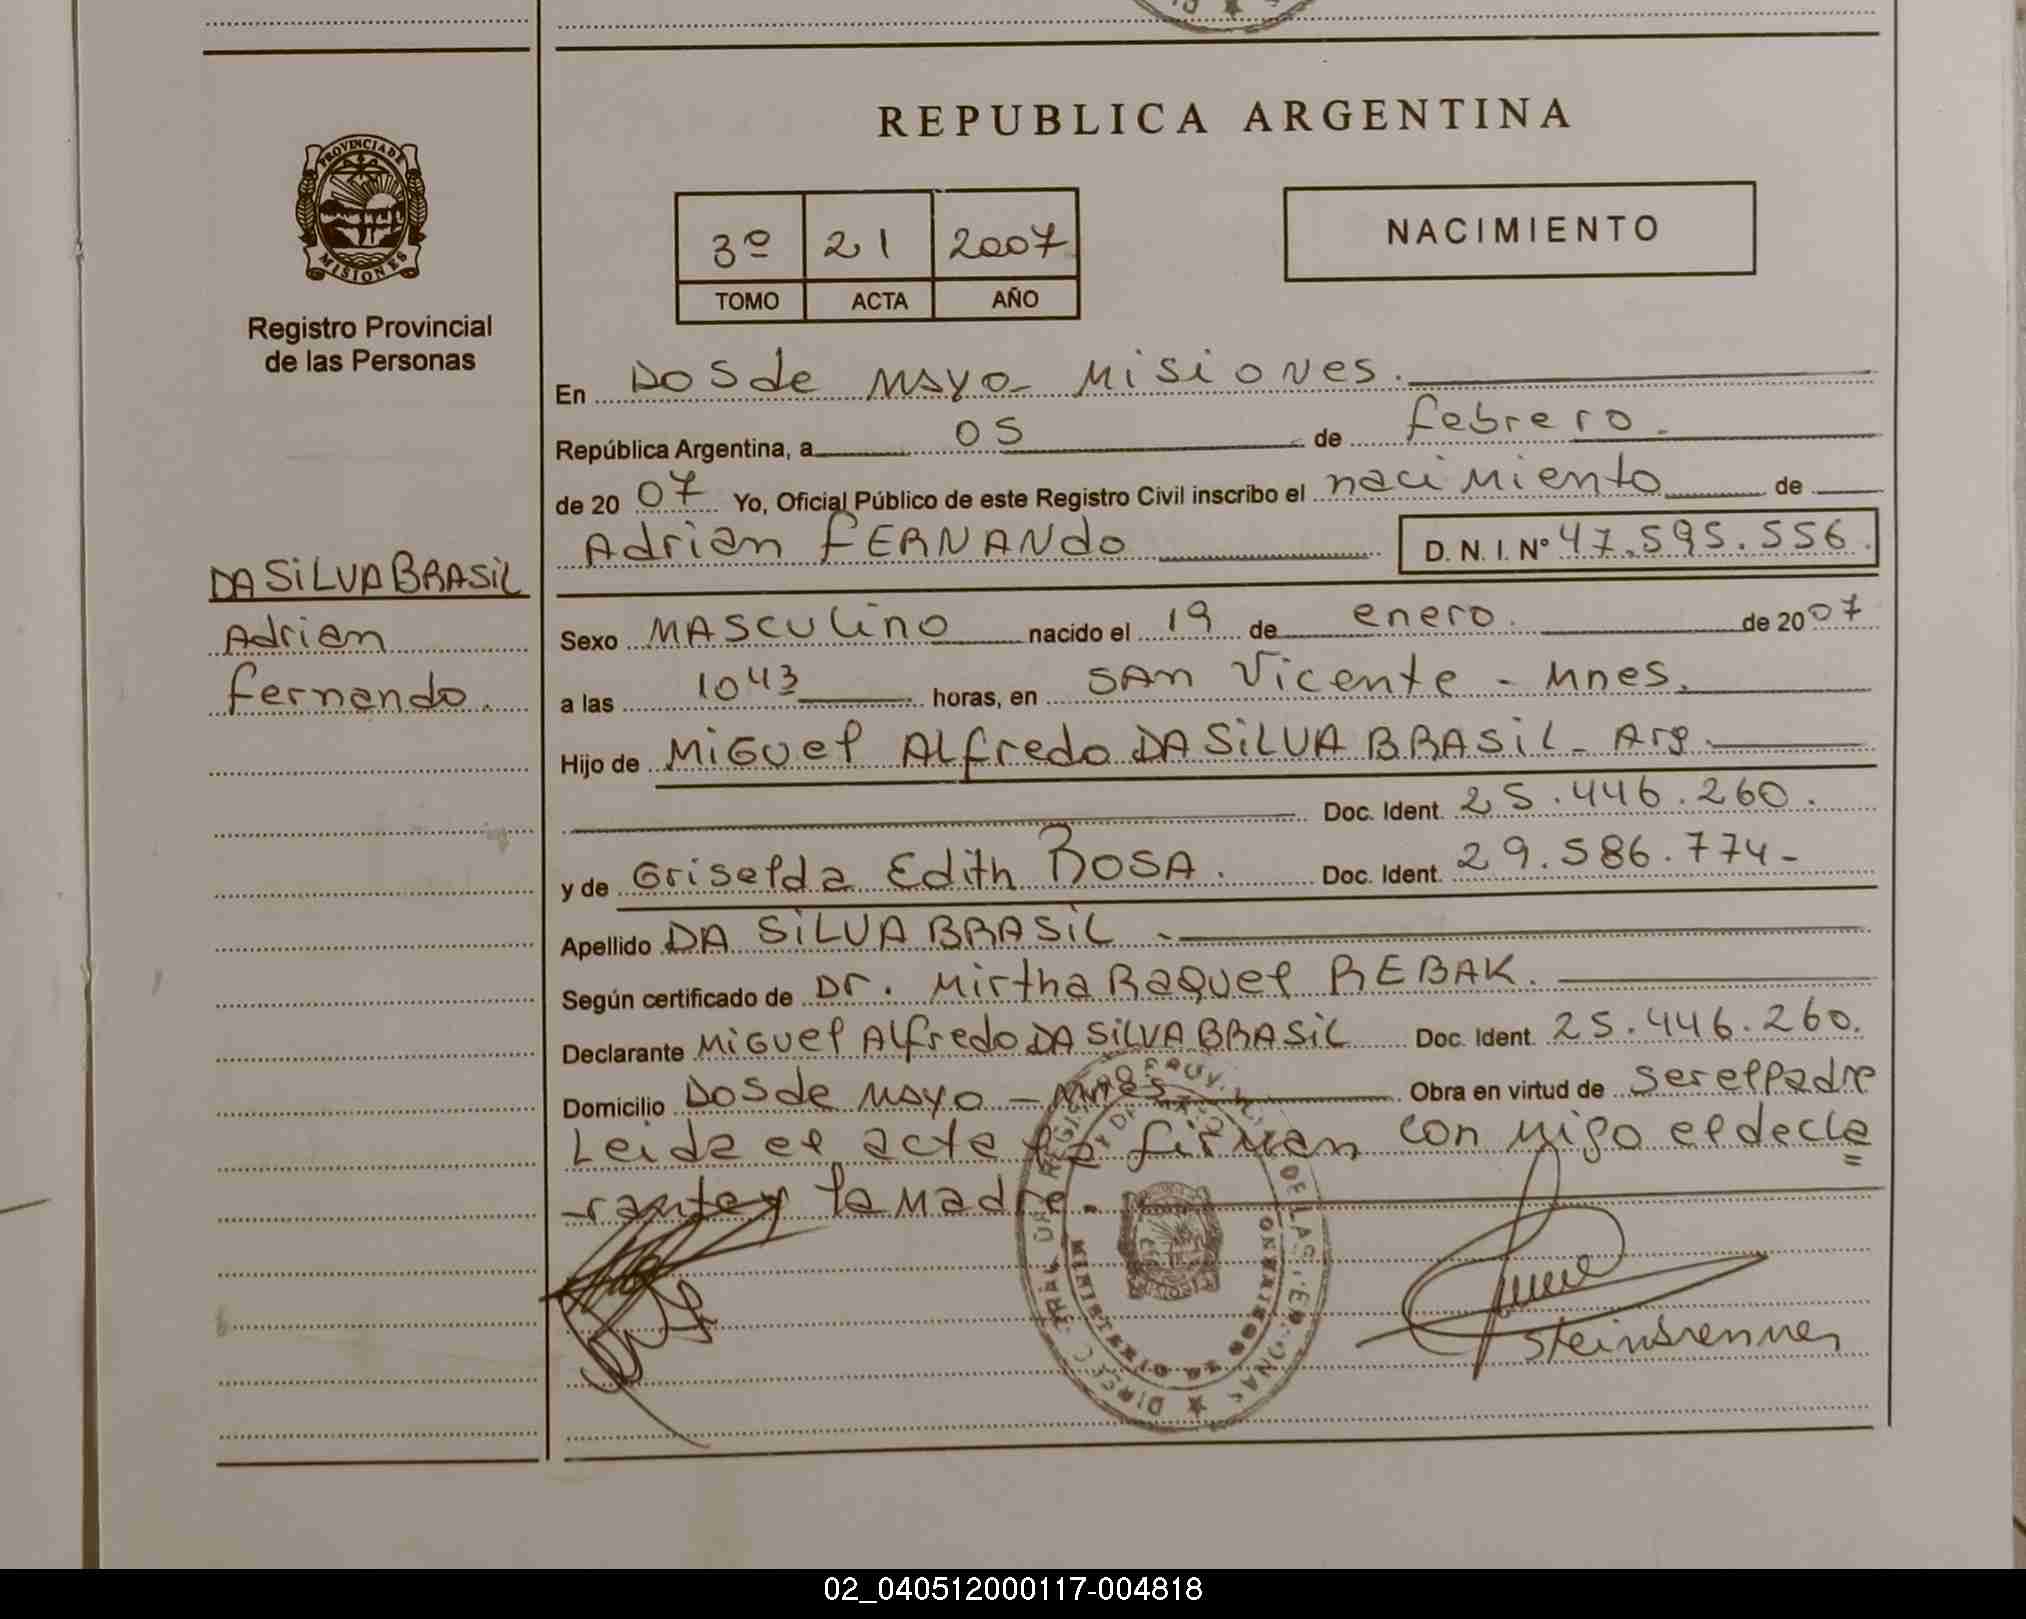 REPUBLICA ARGENTINA
PROVINCIA DE
MISIONES
Registro Provincial
de las Personas
3º 21 2007
TOMO ACTA AÑO
NACIMIENTO
En Dos de Mayo - Misiones.
República Argentina, a 05 de febrero.
de 2007 Yo, Oficial Público de este Registro Civil inscribo el nacimiento de
Adrian FERNANdo D. N. I. Nº 47.595.556.
DA SiLVA BRASiL
Adrian
fernando.
Sexo MASCULino nacido el 19 de enero. de 2007
a las 1043 horas, en SAn Vicente - Mnes.
Hijo de MiGuel Alfredo DA SiLVA BRASiL - Arg.
Doc. Ident. 25.446.260.
y de Griselda Edith ROSA. Doc. Ident. 29.586.774-
Apellido DA SiLVA BRASiL -
Según certificado de Dr. Mirtha Raquel REBAK.
Declarante MiGuel Alfredo DA SiLVA BRASiL Doc. Ident. 25.446.260.
Domicilio Dos de Mayo - Mnes Obra en virtud de ser el Padre
Leida el acta la firman con migo el decla
-rante y la Madre.
Steinbrenner
02_040512000117-004818